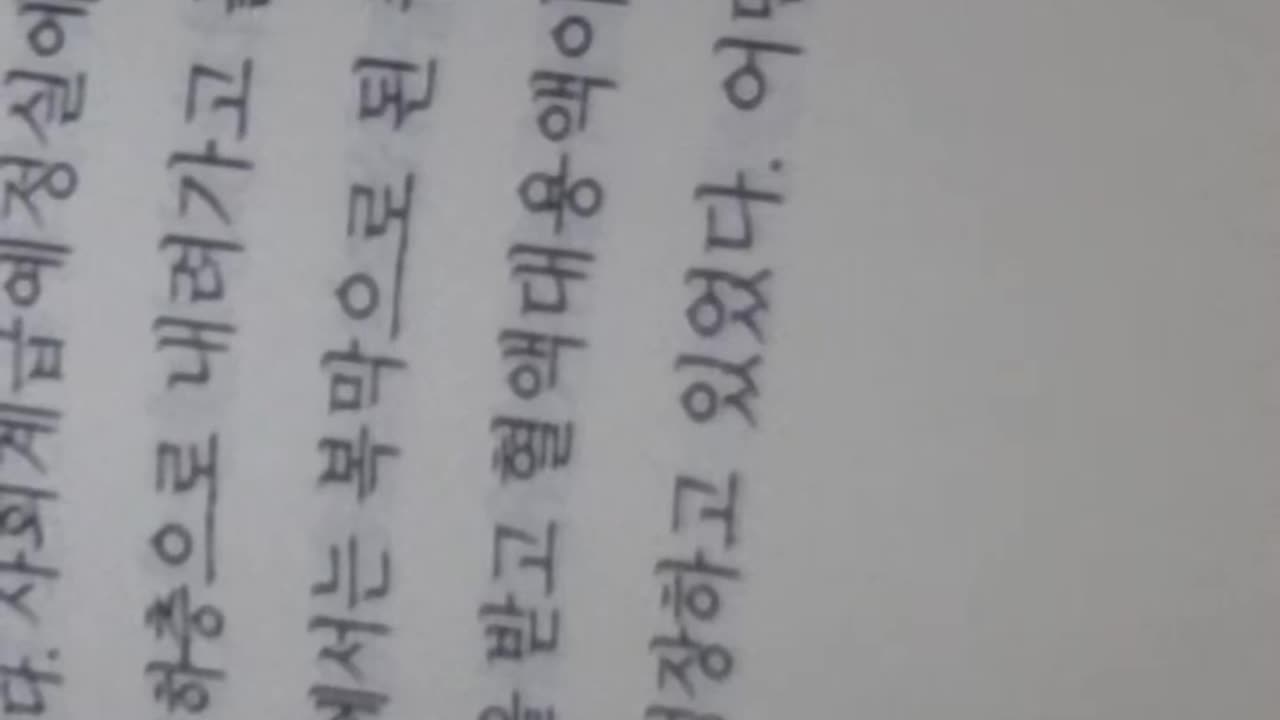 다. 사회계급예정실에
하층으로 내려가고
에서는 복막으로 된
을 받고 혈액대용액이
장하고 있었다. 어